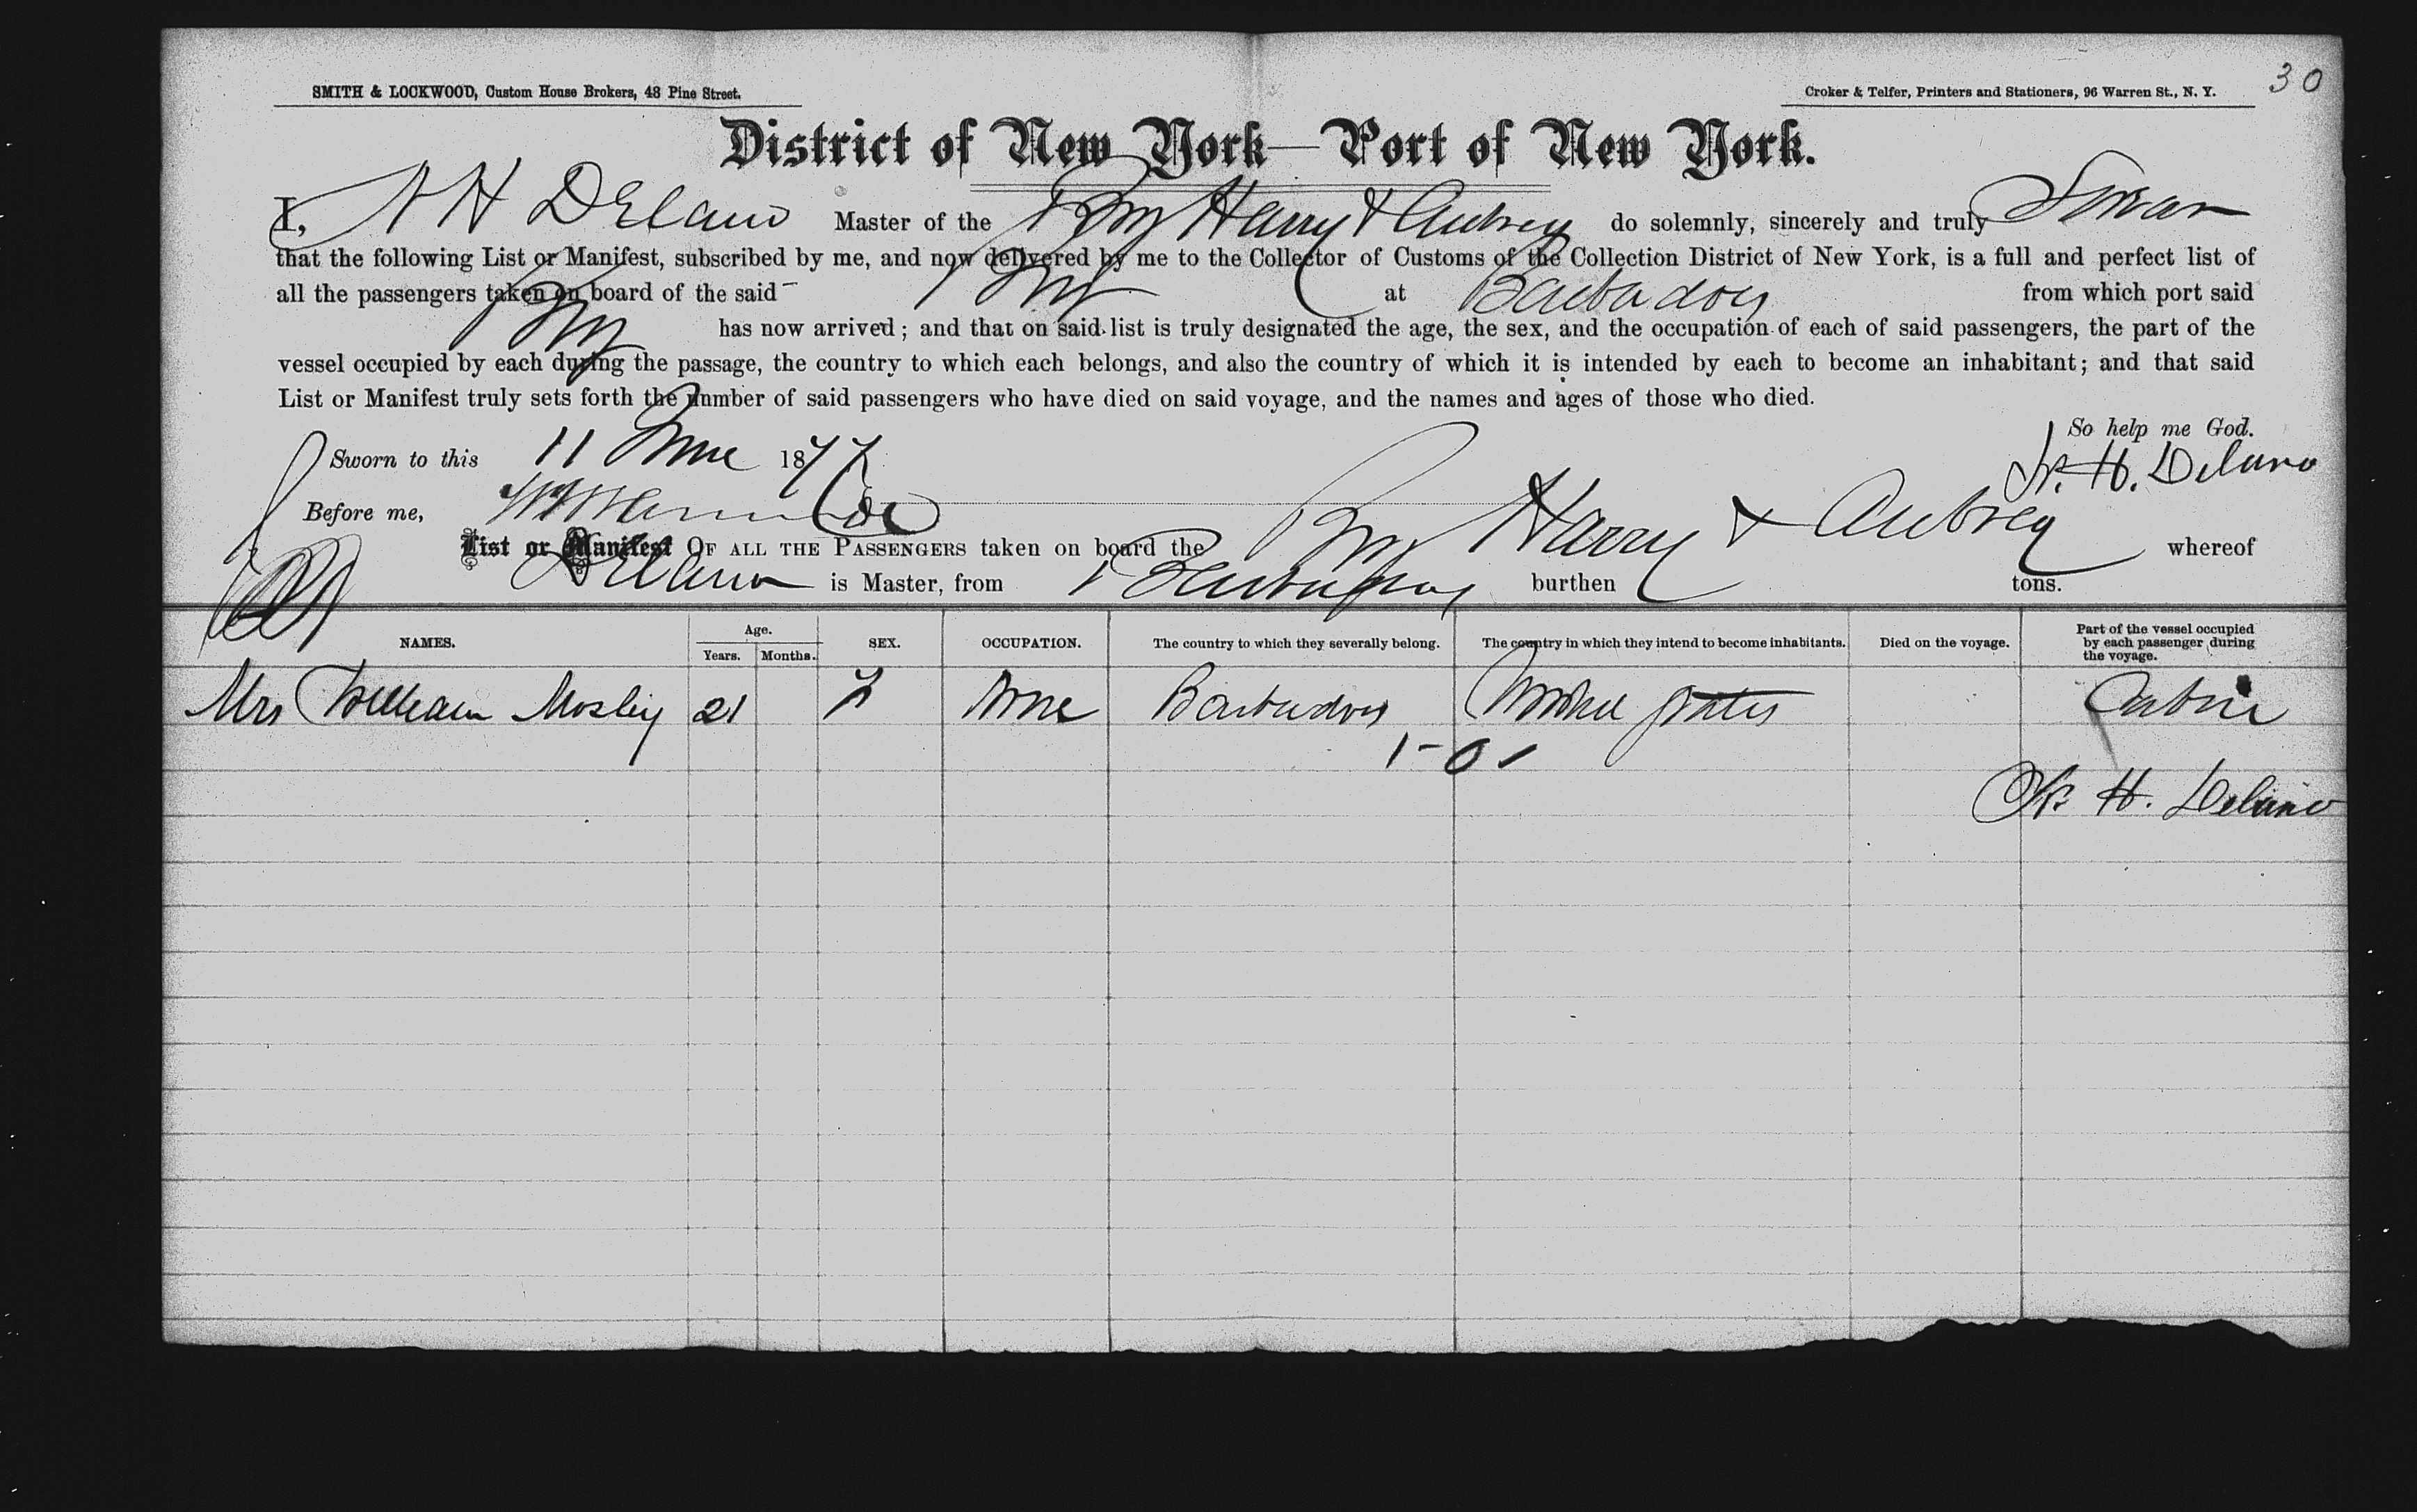 30
SMITH & LOCKWOOD, Custom House Brokers, 48 Pine Street. Croker & Telfer, Printers and Stationers, 96 Warren St., N. Y.
District of New York—Port of New York.
I, H Delano Master of the Brig Harry & Aubrey do solemnly, sincerely and truly Swear
that the following List or Manifest, subscribed by me, and now delivered by me to the Collector of Customs of the Collection District of New York, is a full and perfect list of
all the passengers taken on board of the said Brig at Barbadoes from which port said
Brig has now arrived; and that on said list is truly designated the age, the sex, and the occupation of each of said passengers, the part of the
vessel occupied by each during the passage, the country to which each belongs, and also the country of which it is intended by each to become an inhabitant; and that said
List or Manifest truly sets forth the number of said passengers who have died on said voyage, and the names and ages of those who died.
So help me God.
Sworn to this 11 June 1877 H. Delano
Before me,
List or Manifest OF ALL THE PASSENGERS taken on board the Brig Harry & Aubrey whereof
Delano is Master, from Barbadoes burthen tons.
NAMES. Age. Years. Months. SEX. OCCUPATION. The country to which they severally belong. The country in which they intend to become inhabitants. Died on the voyage. Part of the vessel occupied by each passenger during the voyage.
Mrs William Mosley 21 F None Barbadoes United States Cabin
H. Delano